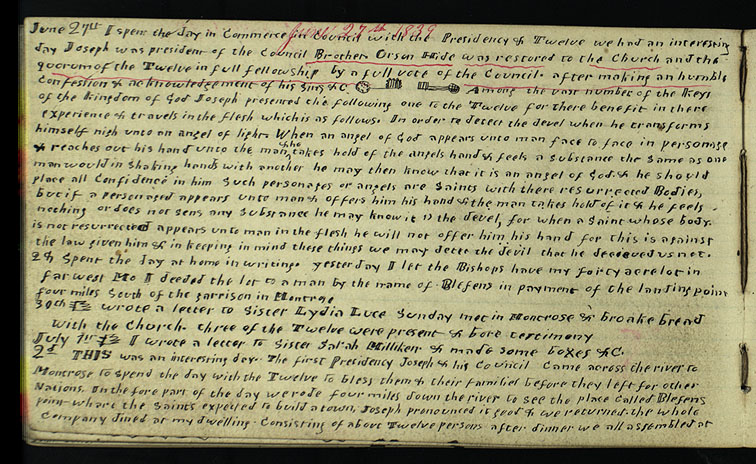 June 27th 1839
June 27th I spent the day in Commerce in Council with the Presidency & Twelve we had an interesting
day Joseph was president of the Council Brother Orson Hide was restored to the Church and the
quorum of the Twelve in full fellowship by a full vote of the Council. after making an humble
Confession & acknowledgement of his sins &C. Among the vast number of the Keys
of the Kingdom of God Joseph presented the following one to the Twelve for there benefit in there
experience & travels in the flesh which is as follows. In order to detect the devel when he transforms
himself nigh unto an angel of light. When an angel of God appears unto man face to face in personage
& reaches out his hand unto the man & he takes hold of the angels hand & feels a substance the Same as one
man would in shaking hands with another he may then know that it is an angel of God, & he should
place all Confidence in him Such personages or angels are Saints with there resurrected Bodies,
but if a personage appears unto man & offers him his hand & the man takes hold of it & he feels
nothing or does not sens any Substance he may know it is the devel, for when a Saint whose body
is not resurrected appears unto man in the flesh he will not offer him his hand for this is against
the law given him & in keeping in mind these things we may detec the devil that he decieved us not.
28 Spent the day at home in writing. yesterday I let the Bishops have my forty acre lot in
far west Mo I deeded the lot to a man by the name of Blefens in payment of the landing point
four miles South of the garrison in Montrose
30th wrote a letter to Sister Lydia Luce Sunday met in Montrose & broake bread
with the Church. three of the Twelve were present & bore testimony
July 1st I wrote a letter to Sister Sarah Milliken & made some boxes &C.
2d THIS was an interesting day. The first Presidency Joseph & his Council Came across the river to
Montrose to spend the day with the Twelve to bless them & their families before they left for other
Nations. In the fore part of the day we rode four miles down the river to see the place Called Blefens
point whare the Saints expected to build a town, Joseph pronounced it good & we returned. the whole
Company dined at my dwelling. Consisting of about Twelve persons after dinner we all assembled at